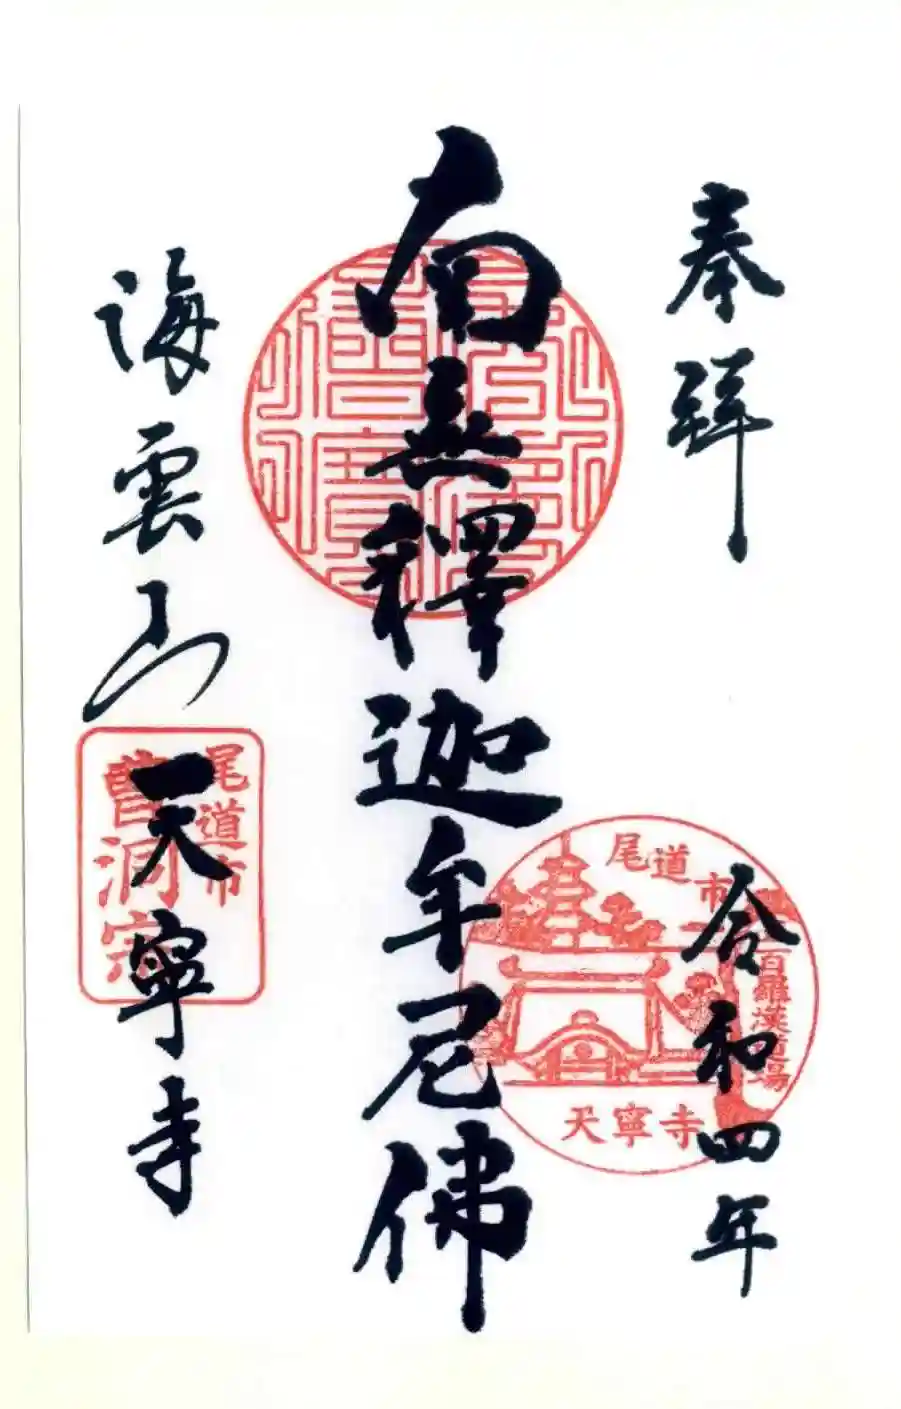 奉拜
令和四年
南無釋迦牟尼佛
海雲山
天寧寺
尾道市
百羅漢道場
天寧寺
尾道市
曹洞宗